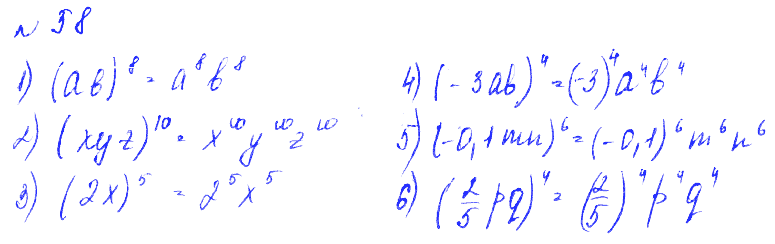 № 58
1) (ab)⁸ = a⁸b⁸
2) (xyz)¹⁰ = x¹⁰y¹⁰z¹⁰
3) (2x)⁵ = 2⁵x⁵
4) (-3ab)⁴ = (-3)⁴a⁴b⁴
5) (-0,1mn)⁶ = (-0,1)⁶m⁶n⁶
6) (2/5 pq)⁴ = (2/5)⁴p⁴q⁴